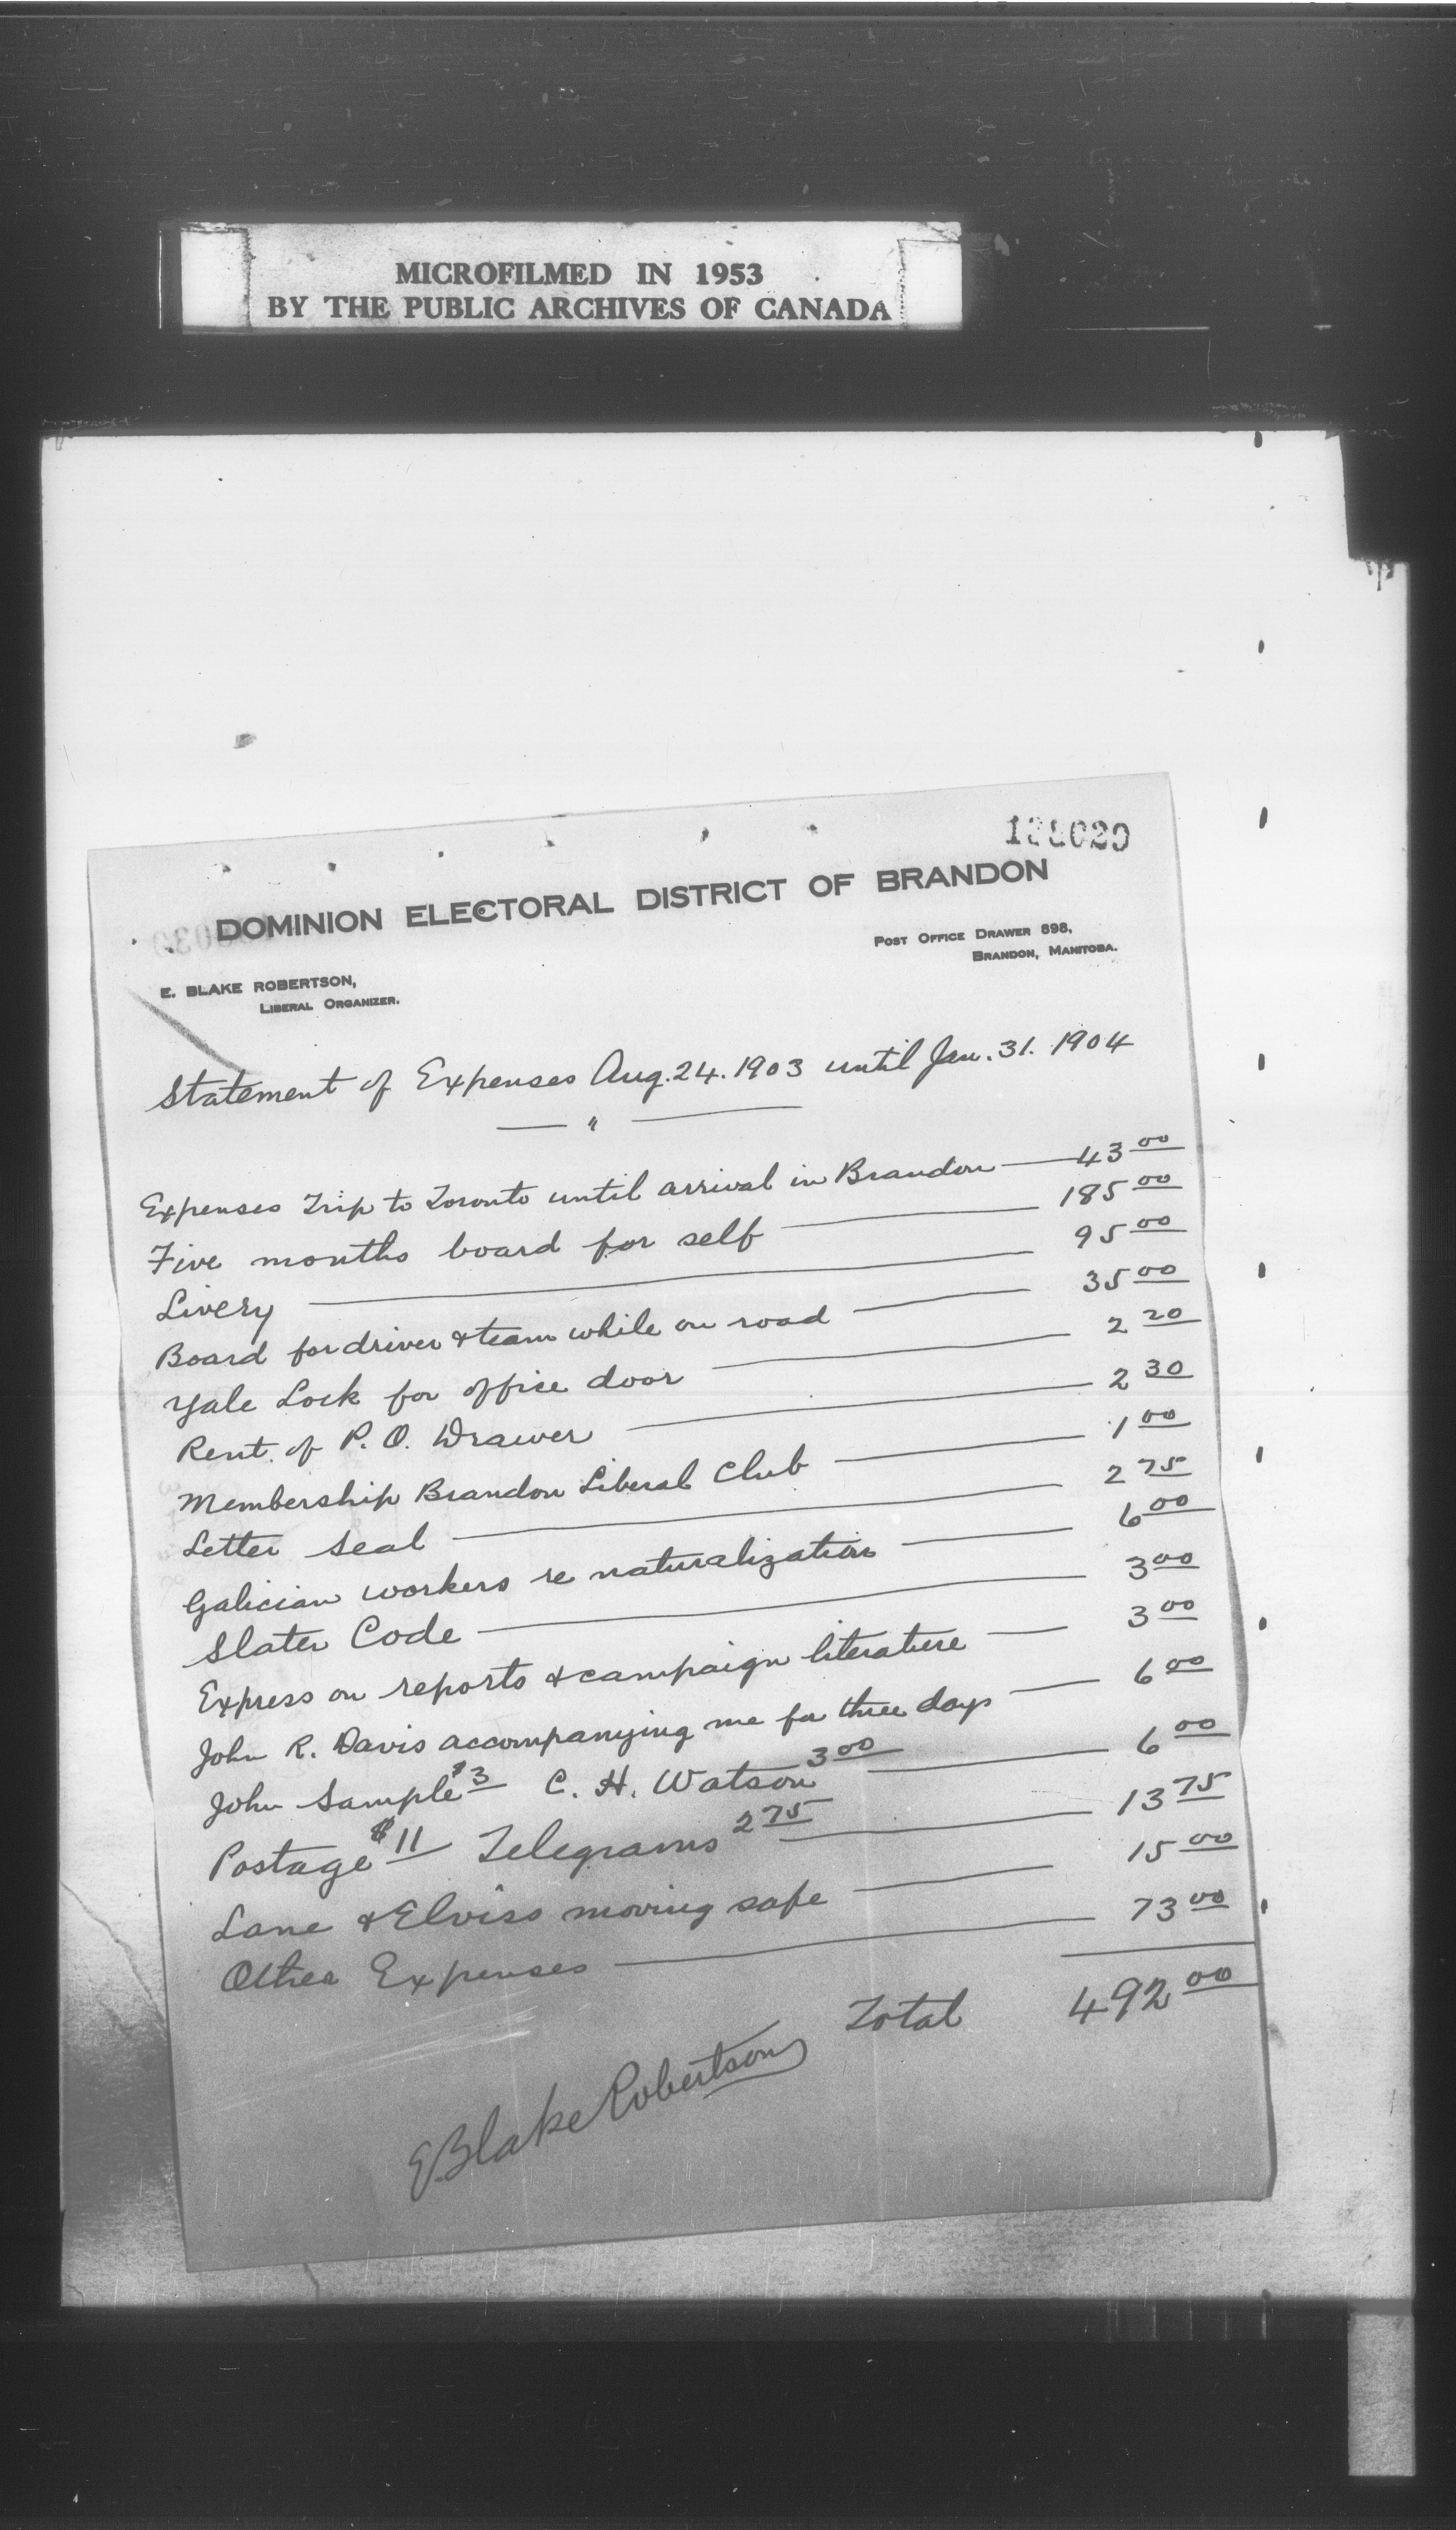 MICROFILMED IN 1953
BY THE PUBLIC ARCHIVES OF CANADA
DOMINION ELECTORAL DISTRICT OF BRANDON
POST OFFICE DRAWER 898,
BRANDON, MANITOBA.
E. BLAKE ROBERTSON,
LIBERAL ORGANIZER.
Statement of Expenses Aug. 24. 1903 until Jan. 31. 1904
— " —
Expenses Trip to Toronto until arrival in Brandon — 43 00
Five months board for self — 185 00
Livery — 95 00
Board for driver & team while on road — 35 00
Yale Lock for office door — 2 20
Rent. of P. O. Drawer — 2 30
Membership Brandon Liberal Club — 1 00
Letter Seal — 2 75
Galician workers re naturalization — 6 00
Slater Code — 3 00
Express on reports & campaign literature — 3 00
John R. Davis accompanying me for three days — 6 00
John Sample $3 C. H. Watson 3 00 — 6 00
Postage $11 Telegrams 2 75 — 13 75
Lane & Elviss moving safe — 15 00
Other Expenses — 73 00
Total 492 00
E Blake Robertson